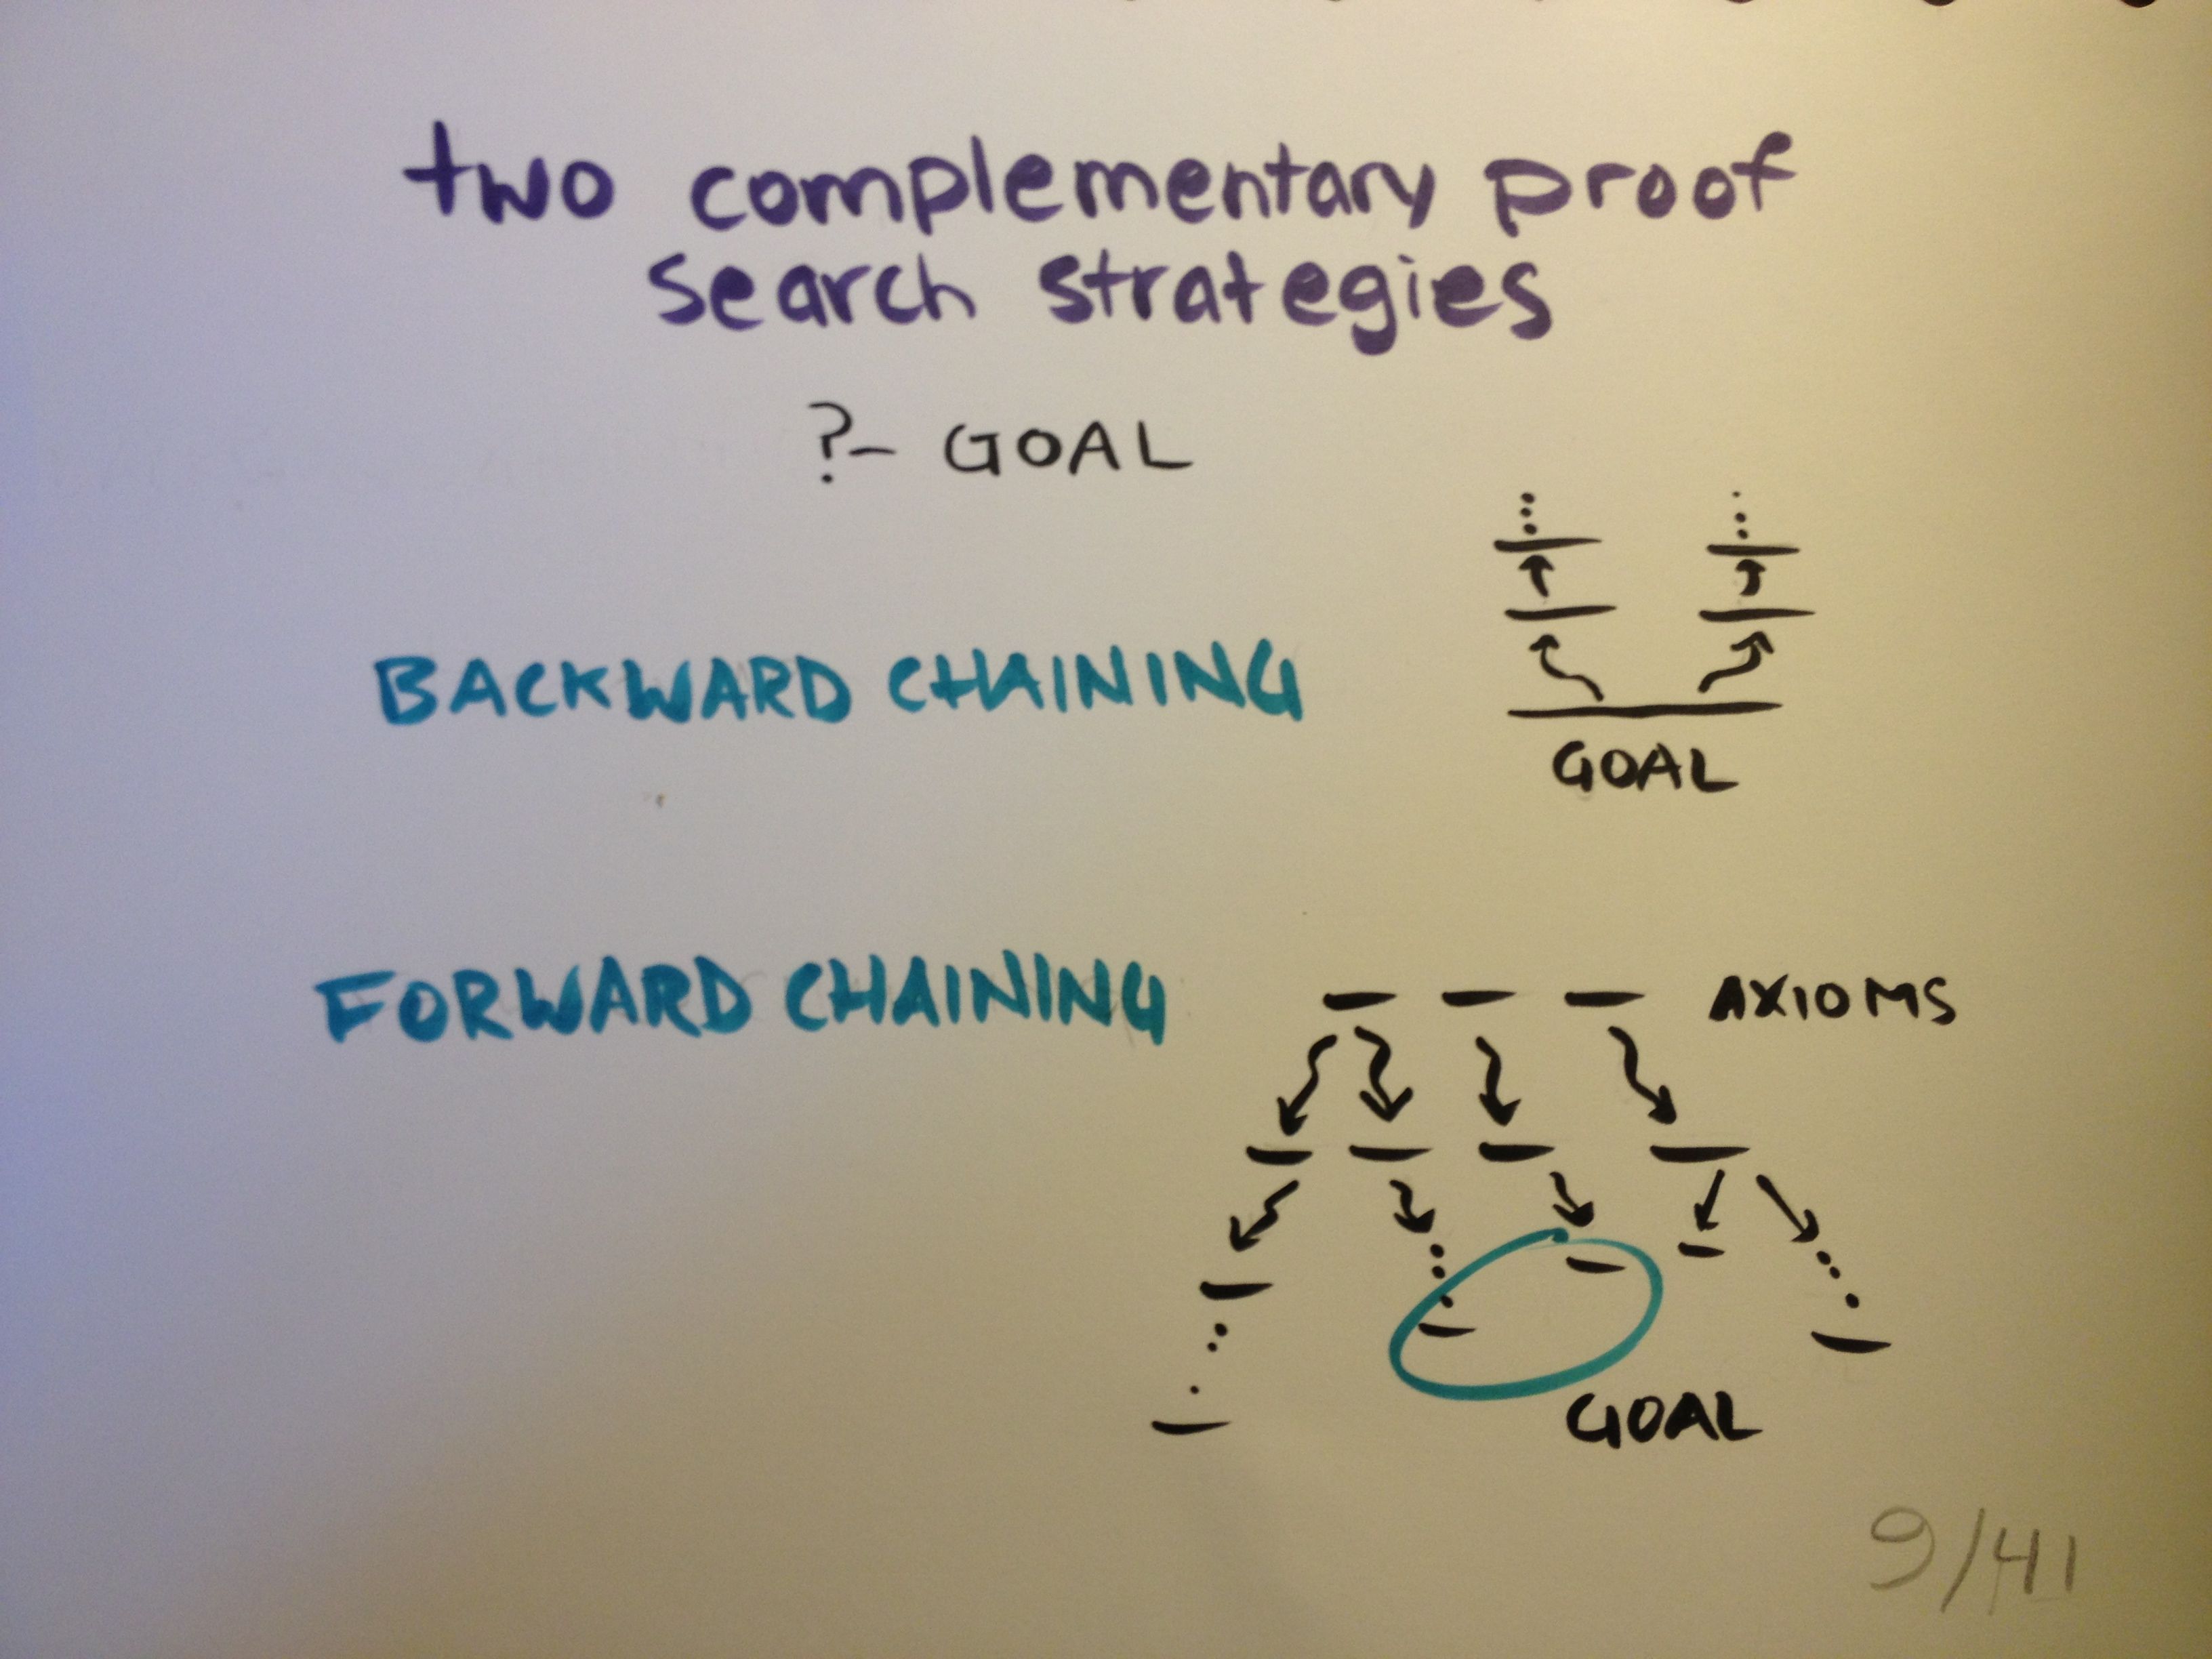 two complementary proof
search strategies
?- GOAL
BACKWARD CHAINING
GOAL
FORWARD CHAINING
AXIOMS
GOAL
9/41